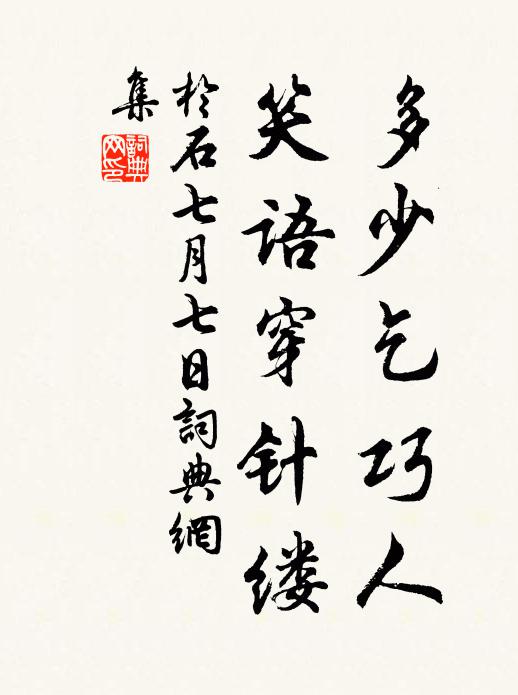 多少乞巧人
笑語穿针缕
於石七月七日詞典網
集
詞典网印